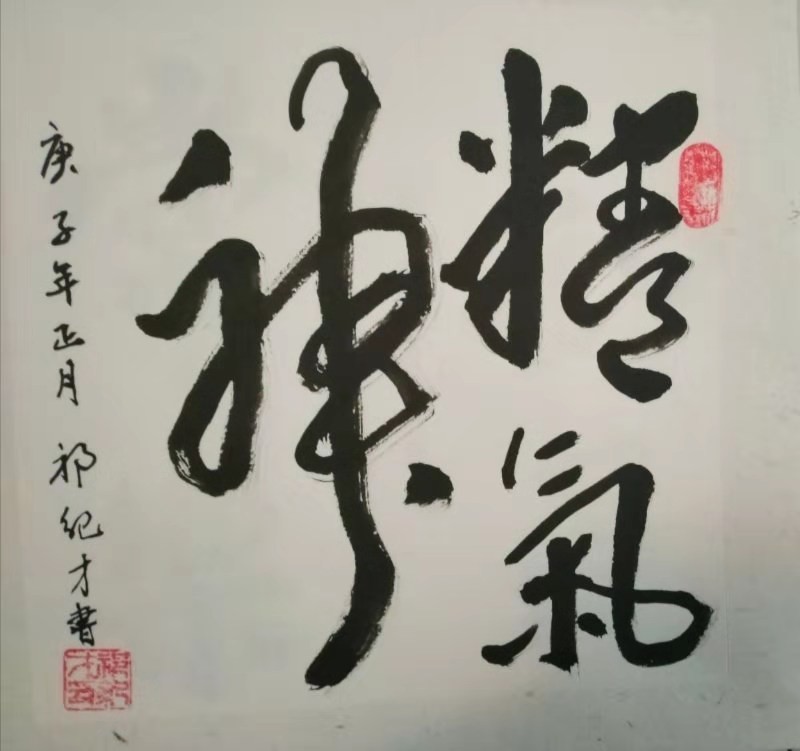 精氣
神
庚子年正月 祁纪才書